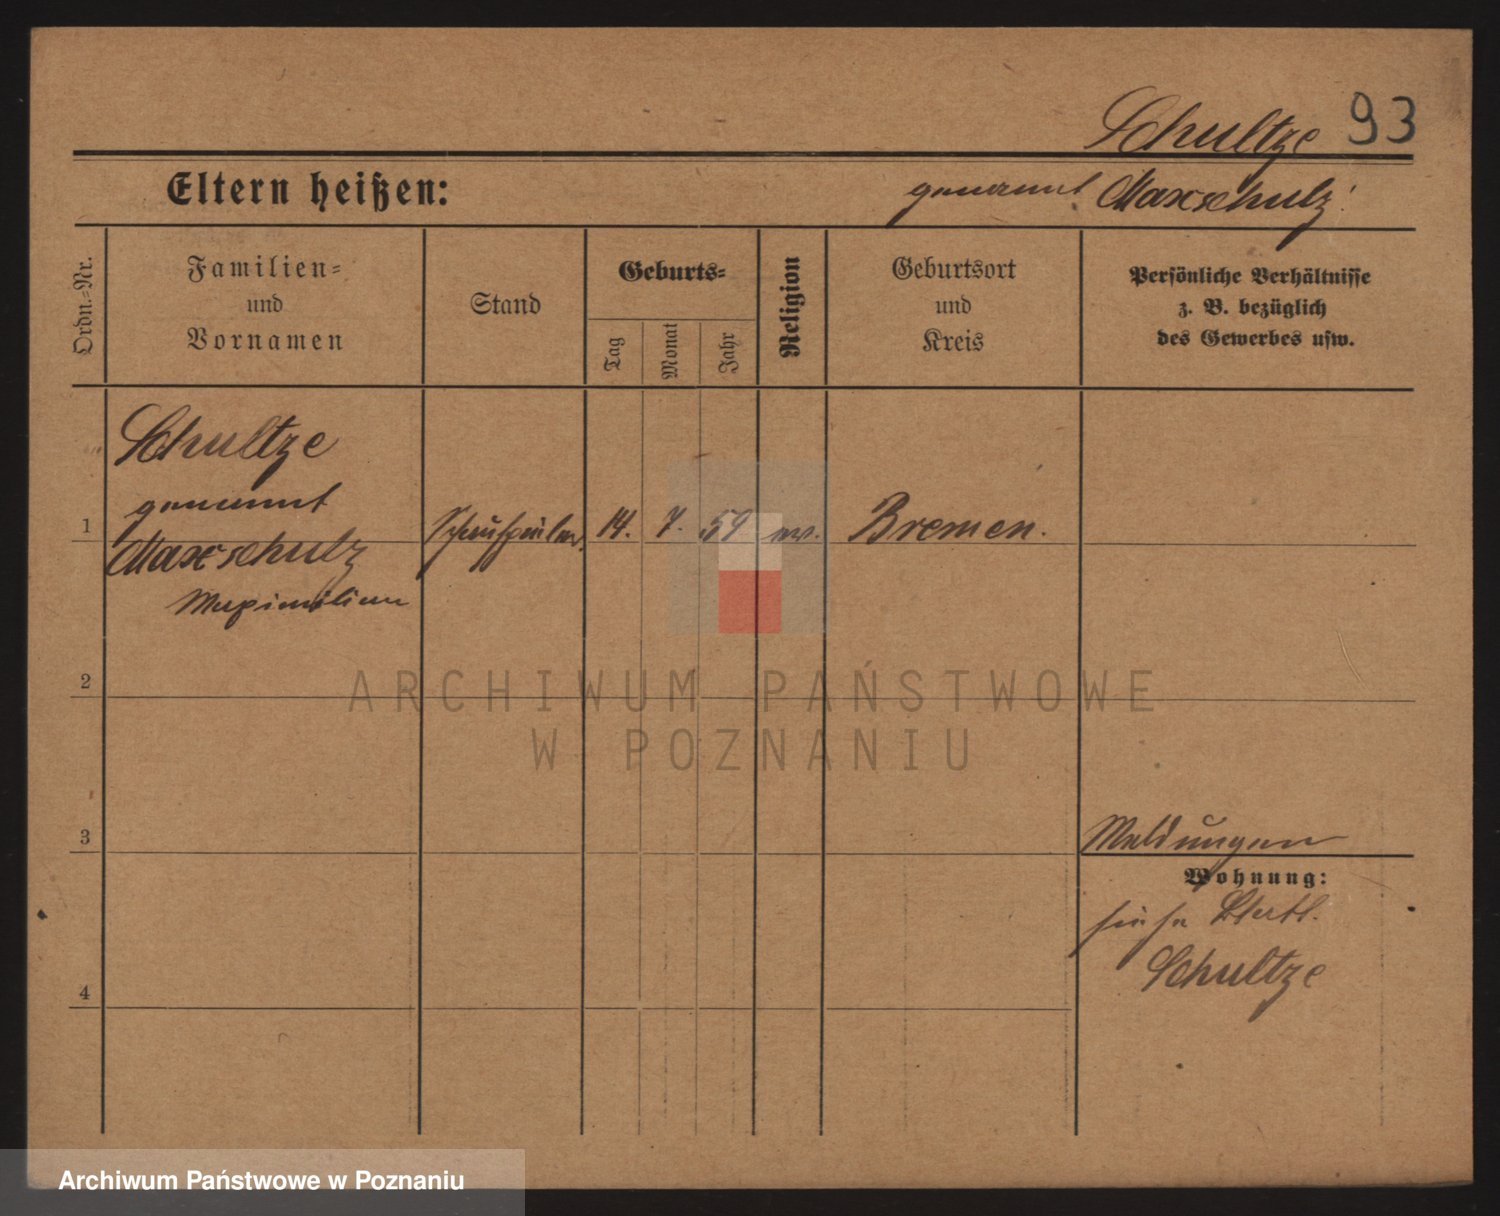 Schultze 93
Eltern heißen: genannt Maxschulz!
Ordn.-Nr.
Familien-
und
Vornamen
Stand
Geburts-
Tag
Monat
Jahr
Religion
Geburtsort
und
Kreis
Persönliche Verhältnisse
z. B. bezüglich
des Gewerbes usw.
Schultze
genannt
1 Maxschulz Schauspieler 14. 7. 59 ev. Bremen.
Maximilian
2
3
Meldungen
Wohnung:
siehe Blatt.
Schultze
4
ARCHIWUM PAŃSTWOWE
W POZNANIU
Archiwum Państwowe w Poznaniu